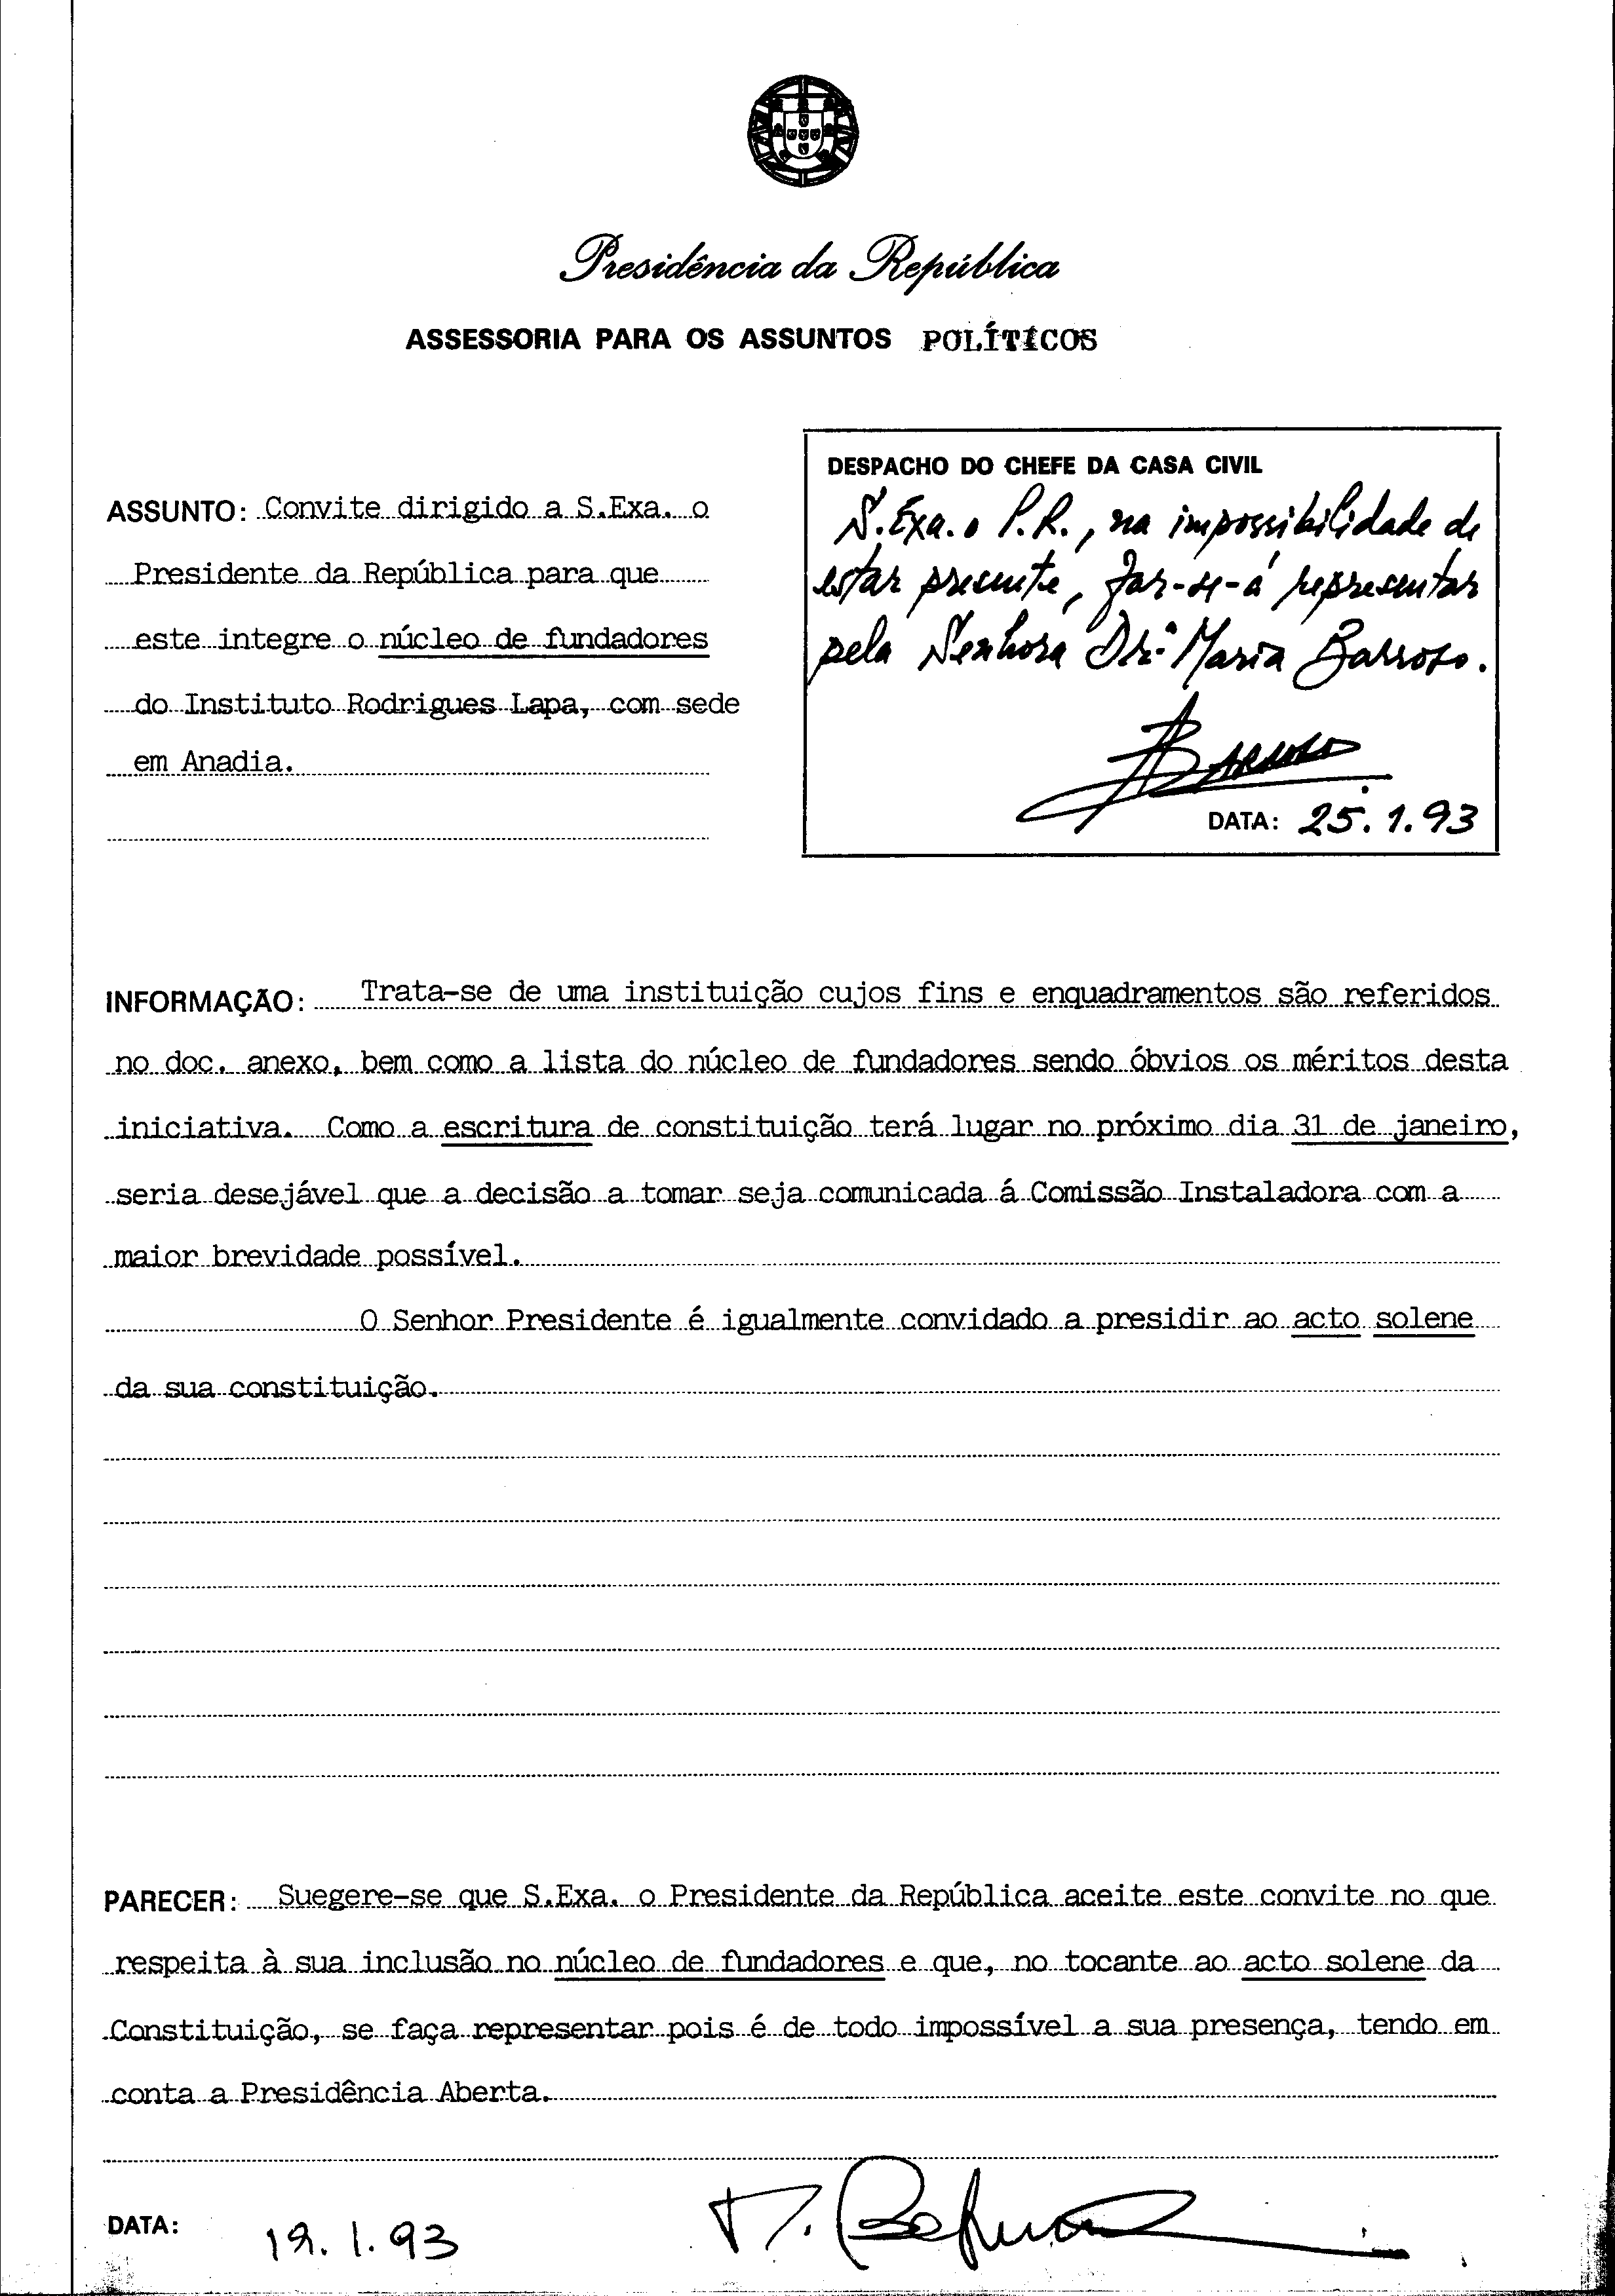 Presidência da República
ASSESSORIA PARA OS ASSUNTOS POLÍTICOS
ASSUNTO: Convite dirigido a S.Exa. o
Presidente da República para que
este integre o núcleo de fundadores
do Instituto Rodrigues Lapa, com sede
em Anadia.
DESPACHO DO CHEFE DA CASA CIVIL
S. Exa. o P.R., na impossibilidade de
estar presente, far-se-á representar
pela Senhora Drª Maria Barroso.
DATA: 25.1.93
INFORMAÇÃO: Trata-se de uma instituição cujos fins e enquadramentos são referidos
no doc. anexo, bem como a lista do núcleo de fundadores sendo óbvios os méritos desta
iniciativa. Como a escritura de constituição terá lugar no próximo dia 31 de janeiro,
seria desejável que a decisão a tomar seja comunicada á Comissão Instaladora com a
maior brevidade possível.
O Senhor Presidente é igualmente convidado a presidir ao acto solene
da sua constituição.
PARECER: Suegere-se que S.Exa. o Presidente da República aceite este convite no que
respeita à sua inclusão no núcleo de fundadores e que, no tocante ao acto solene da
Constituição, se faça representar pois é de todo impossível a sua presença, tendo em
conta a Presidência Aberta.
DATA: 19.1.93